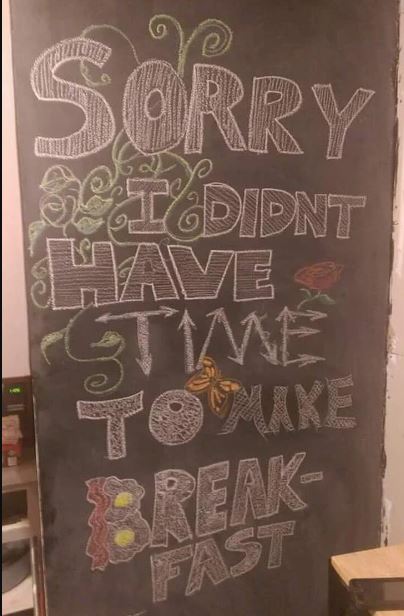 SORRY
I DIDNT
HAVE
TIME
TO MAKE
BREAK-
FAST